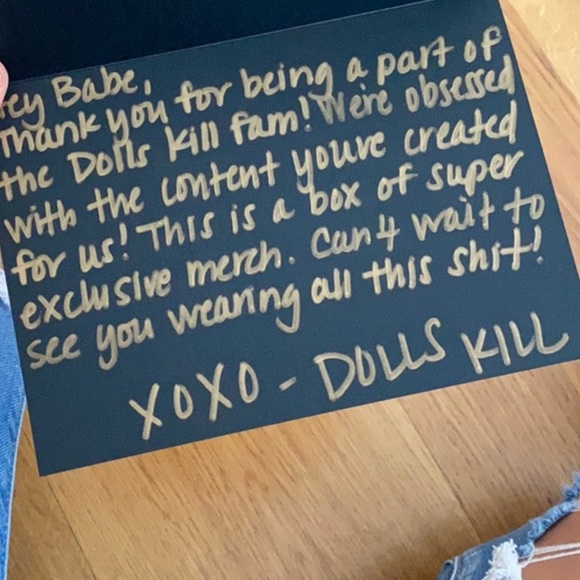 ey Babe,
Thank you for being a part of
the Dolls Kill fam! We're obsessed
with the content youve created
for us! This is a box of super
exclusive merch. Can't wait to
see you wearing all this shit!
XOXO - DOLLS KILL